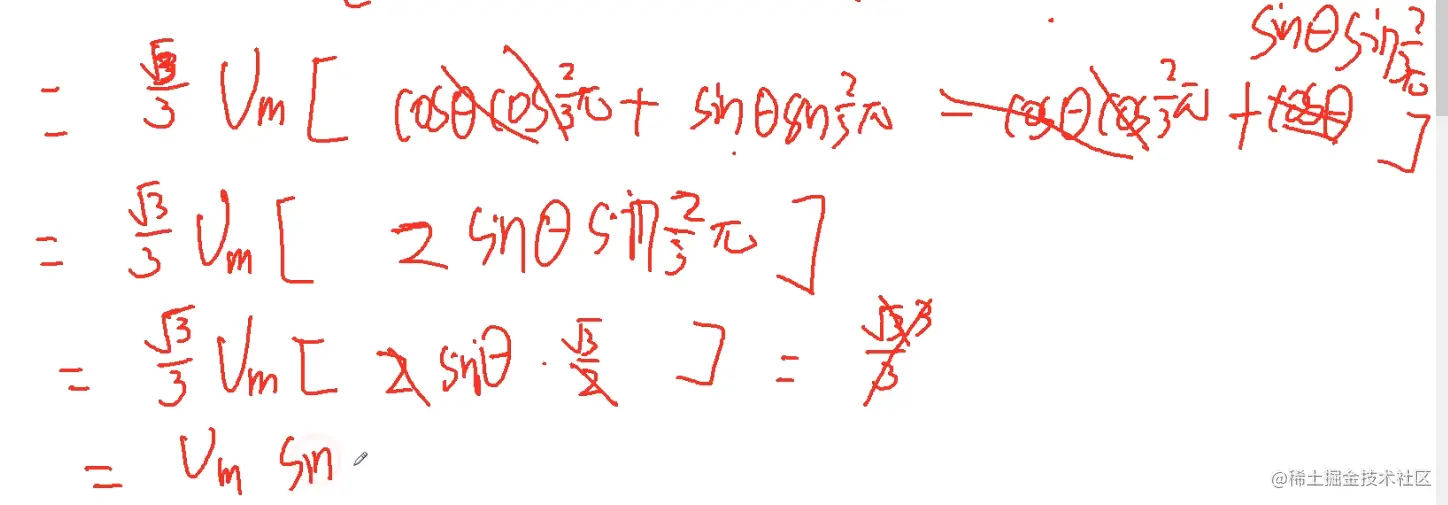 sinθ sin 2/3 π
= √3/3 Um [ cosθ cos 2/3 π + sinθ sin 2/3 π - cosθ cos 2/3 π + cosθ ]
= √3/3 Um [ 2 sinθ sin 2/3 π ]
= √3/3 Um [ 2 sinθ · √3/2 ] = √3·3/3
= Um sin
@稀土掘金技术社区